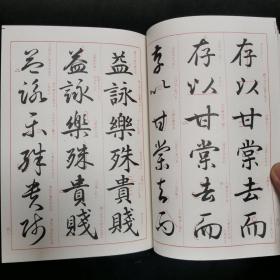 存以甘棠去而
存以甘棠去而
存以甘棠去而
益詠樂殊貴賤
益詠樂殊貴賤
益詠樂殊貴賤